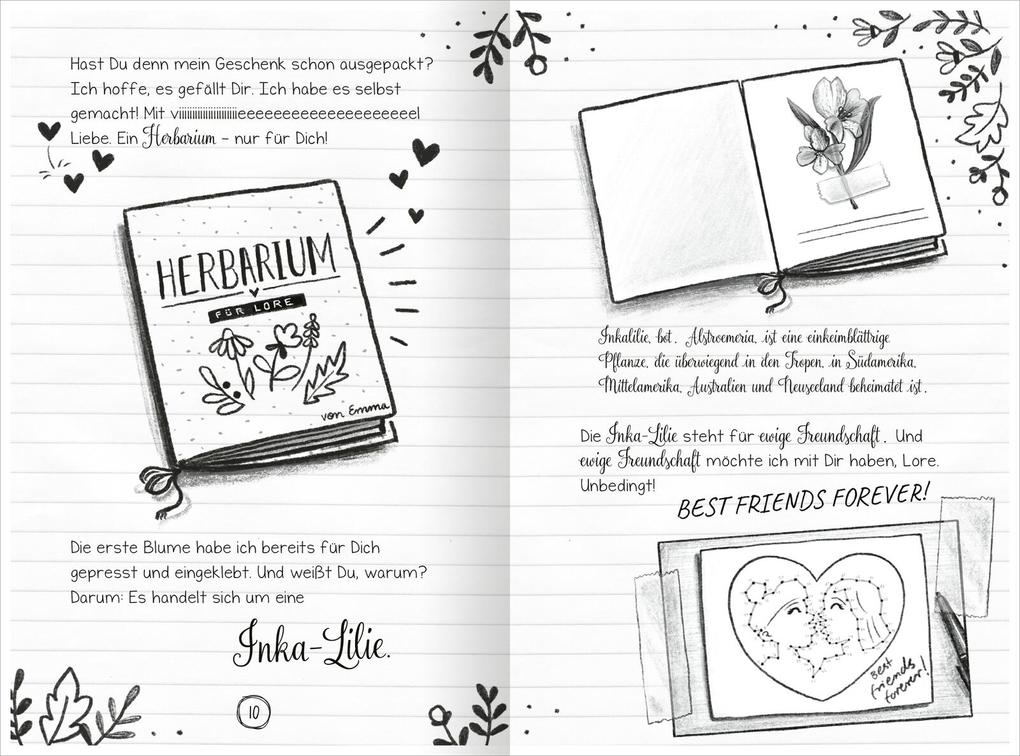 Hast Du denn mein Geschenk schon ausgepackt?
Ich hoffe, es gefällt Dir. Ich habe es selbst
gemacht! Mit viiiiiiiiiiiiiiiiiiiiiieeeeeeeeeeeeeeeeeeeeeel
Liebe. Ein Herbarium – nur für Dich!
HERBARIUM
FÜR LORE
von Emma
Die erste Blume habe ich bereits für Dich
gepresst und eingeklebt. Und weißt Du, warum?
Darum: Es handelt sich um eine
Inka-Lilie.
10
Inkalilie, bot. Alstroemeria, ist eine einkeimblättrige
Pflanze, die überwiegend in den Tropen, in Südamerika,
Mittelamerika, Australien und Neuseeland beheimatet ist.
Die Inka-Lilie steht für ewige Freundschaft. Und
ewige Freundschaft möchte ich mit Dir haben, Lore.
Unbedingt!
BEST FRIENDS FOREVER!
Best
friends
forever!